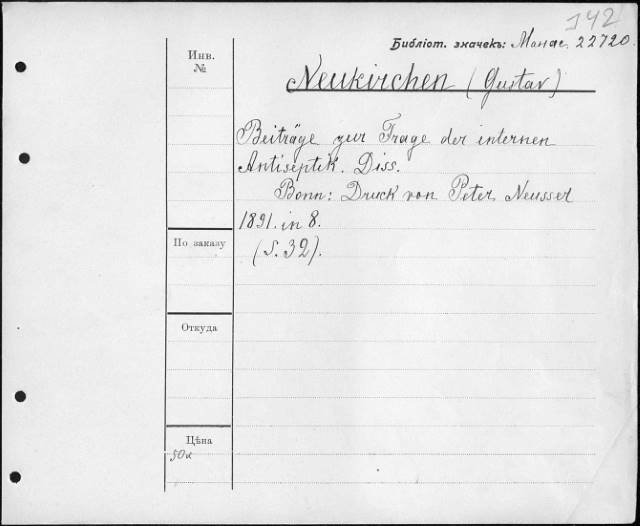 142
Библіот. значекъ: Манас. 22720.
Инв.
№
Neukirchen (Gustav)
Beiträge zur Frage der internen
Antiseptik. Diss.
Bonn: Druck von Peter Neusser
1891. in 8.
(S. 32).
По заказу
Откуда
Цѣна
50к